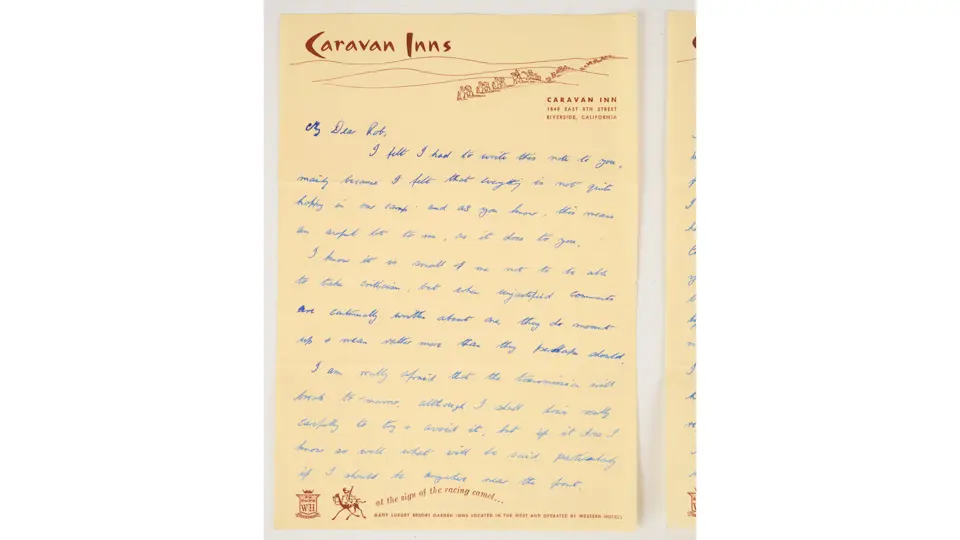 Caravan Inns
CARAVAN INN
1860 EAST 8TH STREET
RIVERSIDE, CALIFORNIA
My Dear Rob,
I felt I had to write this note to you,
mainly because I felt that everything is not quite
happy in our camp. and as you know, this means
an awful lot to me, as it does to you.
I know it is small of me not to be able
to take criticism, but when unjustified comments
are continually written about one, they do mount
up & mean rather more than they perhaps should.
I am really afraid that the transmission will
break to-morrow, although I shall drive really
carefully to try & avoid it, but if it does I
know so well what will be said particularly
if I should be anywhere near the front.
WH
at the sign of the racing camel...
LUXURY RESORT GARDEN INNS LOCATED IN THE WEST AND OPERATED BY WESTERN HOTELS